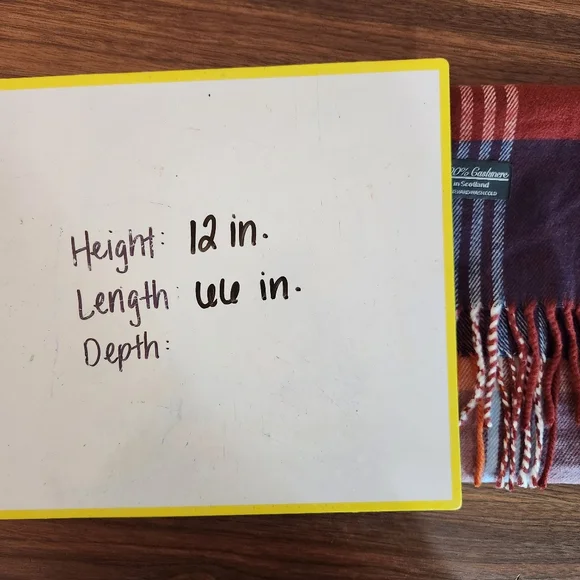 Height: 12 in.
Length: 66 in.
Depth:
00% Cashmere
in Scotland